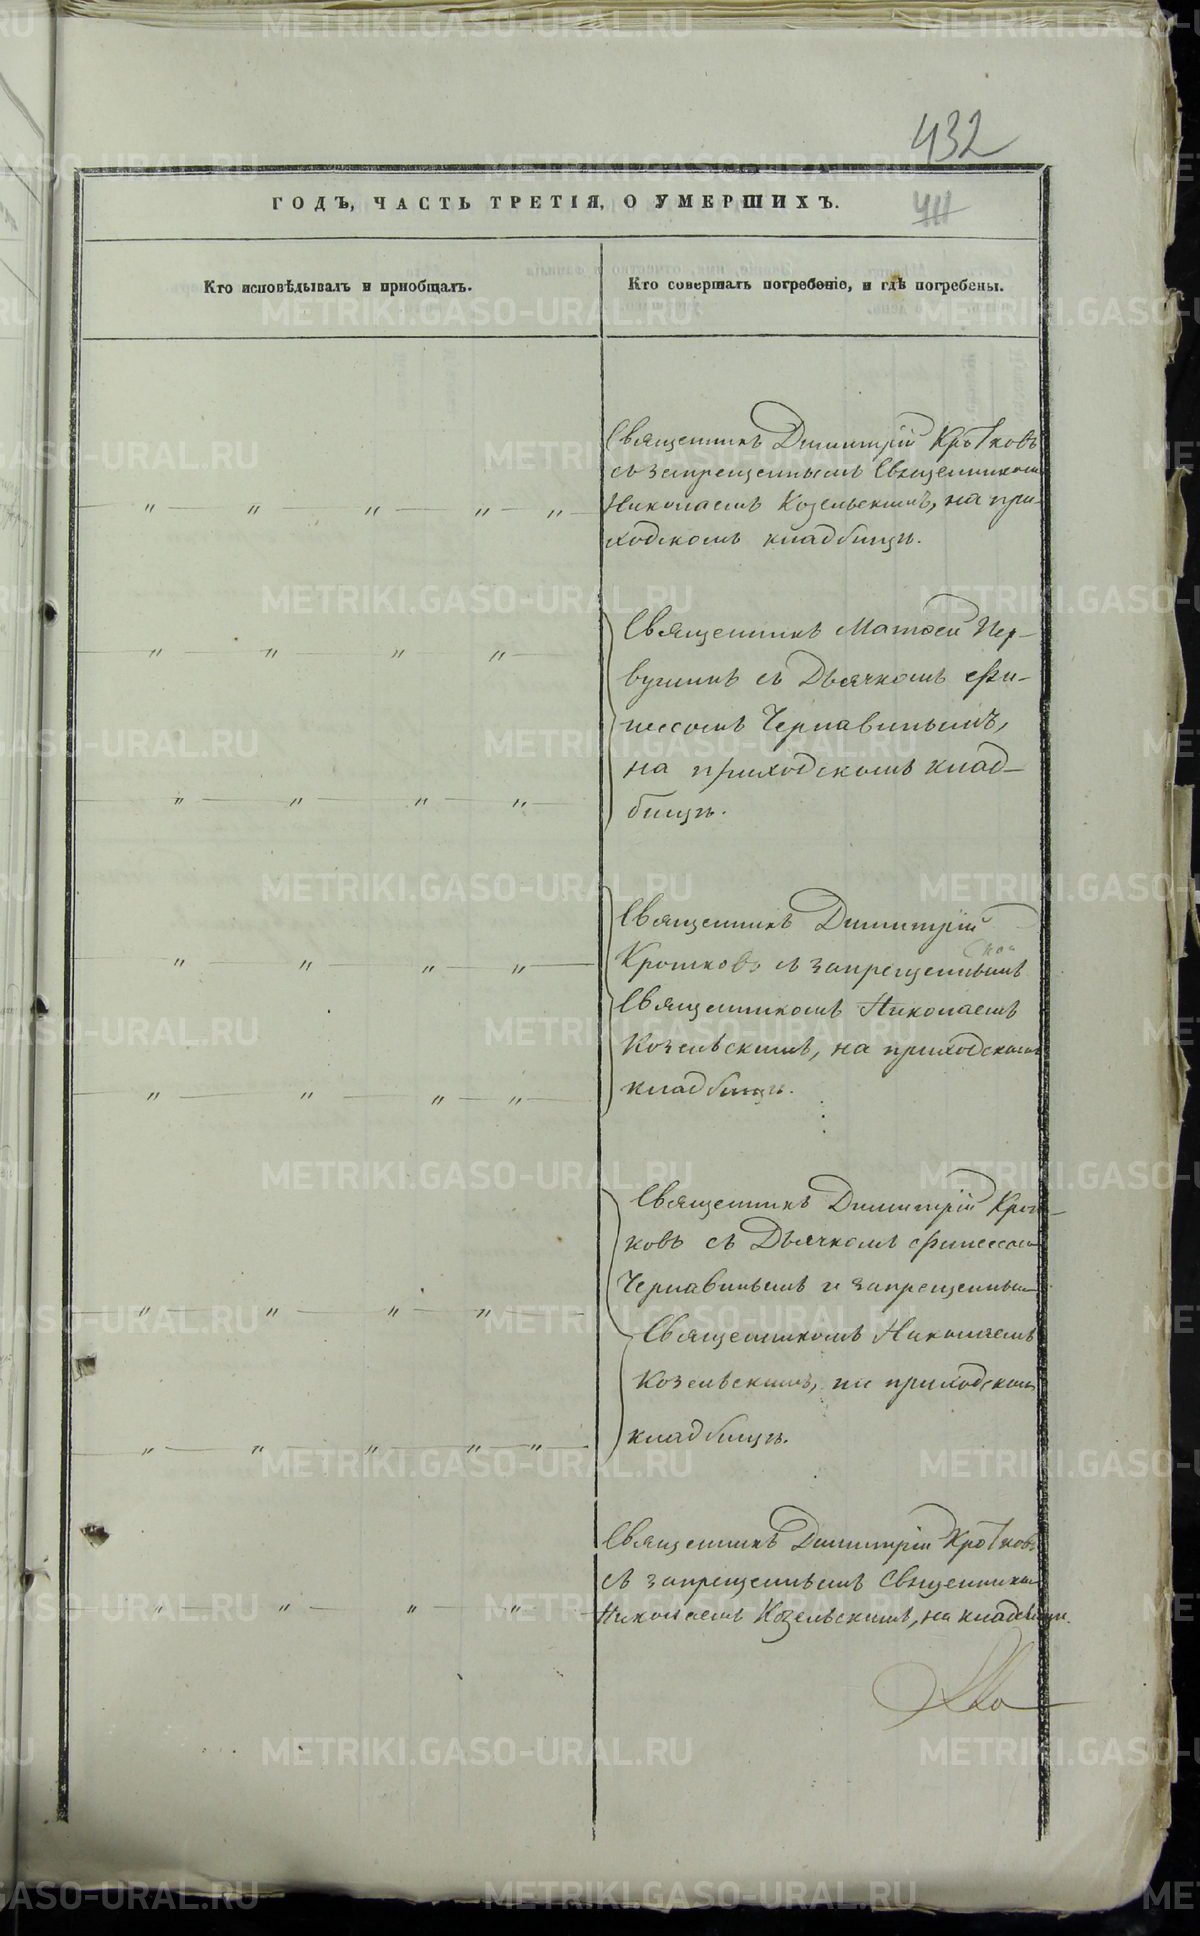 432
ГОДЪ, ЧАСТЬ ТРЕТІЯ, О УМЕРШИХЪ.
Кто исповѣдывалъ и пріобщалъ.
Кто совершалъ погребеніе, и гдѣ погребены.
Священникъ Димитрій Кротковъ
съ запрещеннымъ Священникомъ
Николаемъ Козельскимъ, на при-
ходскомъ кладбищѣ.
Священникъ Матѳей Пер-
вушинъ съ Дьячкомъ Фи-
нессомъ Чернавинымъ,
на приходскомъ клад-
бищѣ.
Священникъ Димитрій
Кротковъ съ запрещеннымъ
Священникомъ Николаемъ
Козельскимъ, на приходскомъ
кладбищѣ.
Священникъ Димитрій Крот-
ковъ съ Дьячкомъ Финессомъ
Чернавинымъ и запрещеннымъ
Священникомъ Николаемъ
Козельскимъ, на приходскомъ
кладбищѣ.
Священникъ Димитрій Кротковъ
съ запрещеннымъ Священникомъ
Николаемъ Козельскимъ, на кладбищѣ.
METRIKI.GASO-URAL.RU